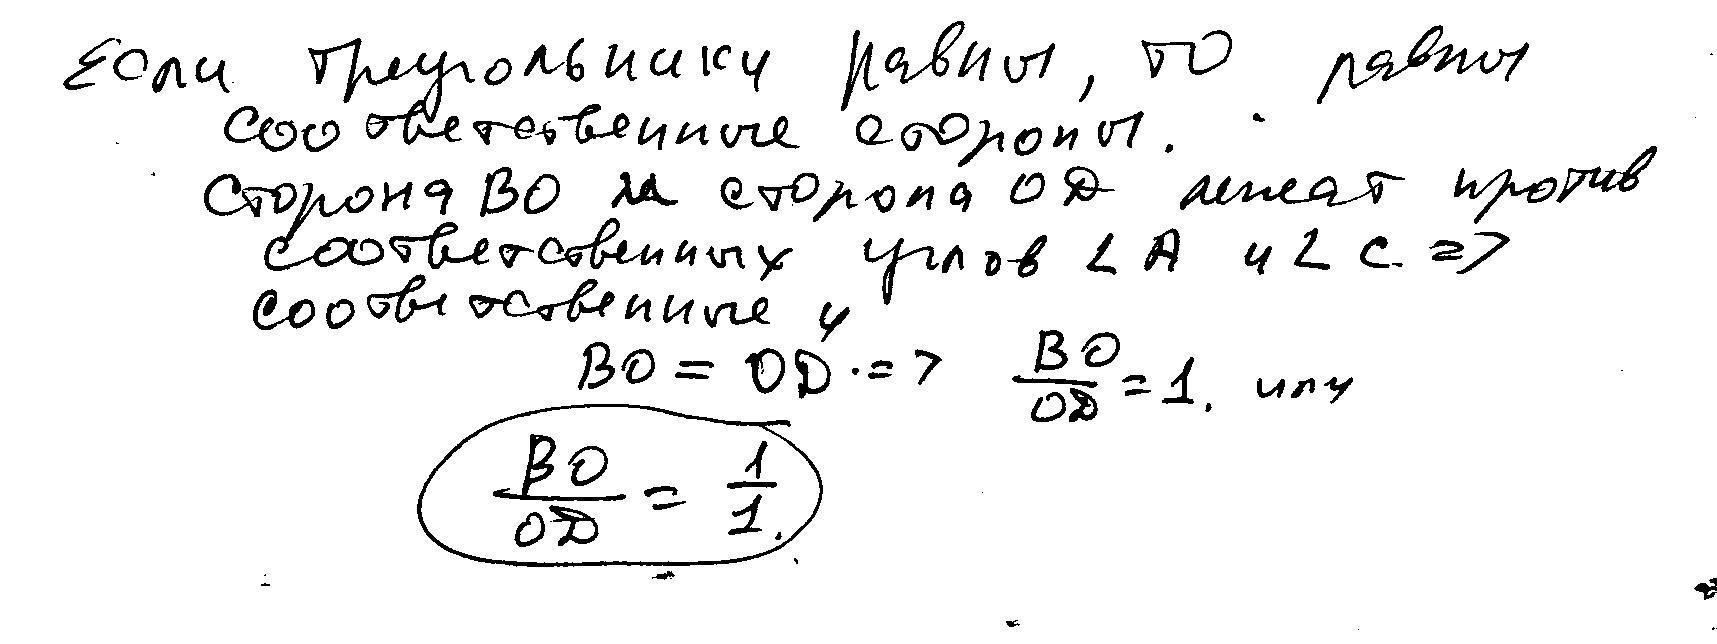 Если треугольники равны, то равны
соответственные стороны.
Сторона ВО и сторона ОД лежат против
соответственных углов ∠А и ∠С. =>
соответственные и
ВО = ОД. => ВО/ОД = 1. или
ВО/ОД = 1/1.